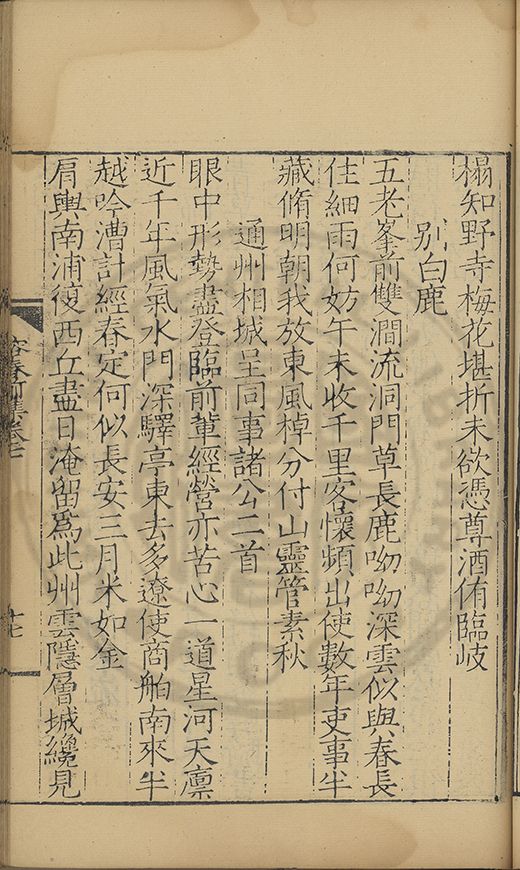 榻知野寺梅花堪折未欲憑尊酒侑臨岐
別白鹿
五老峯前雙澗流洞門草長鹿呦呦深雲似與春長
住細雨何妨午未收千里客懷頻出使數年吏事半
藏脩明朝我放東風棹分付山靈管素秋
通州相城呈同事諸公二首
眼中形勢盡登臨前輩經營亦苦心一道星河天凛
近千年風氣水門深驛亭東去多遼使商舶南來半
越吟漕計經春定何似長安三月米如金
肩輿南浦復西丘盡日淹留爲此州雲隱層城纔見
容春前集卷七
十七